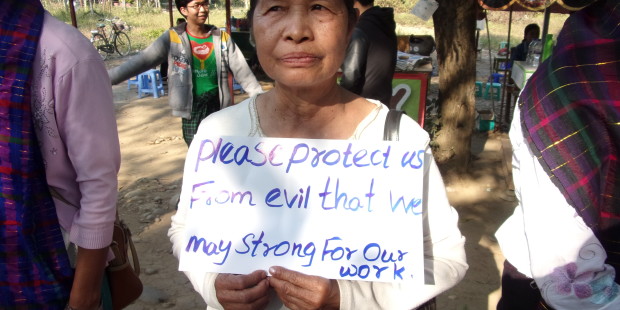 Please Protect us
From evil that we
may Strong For Our
work.